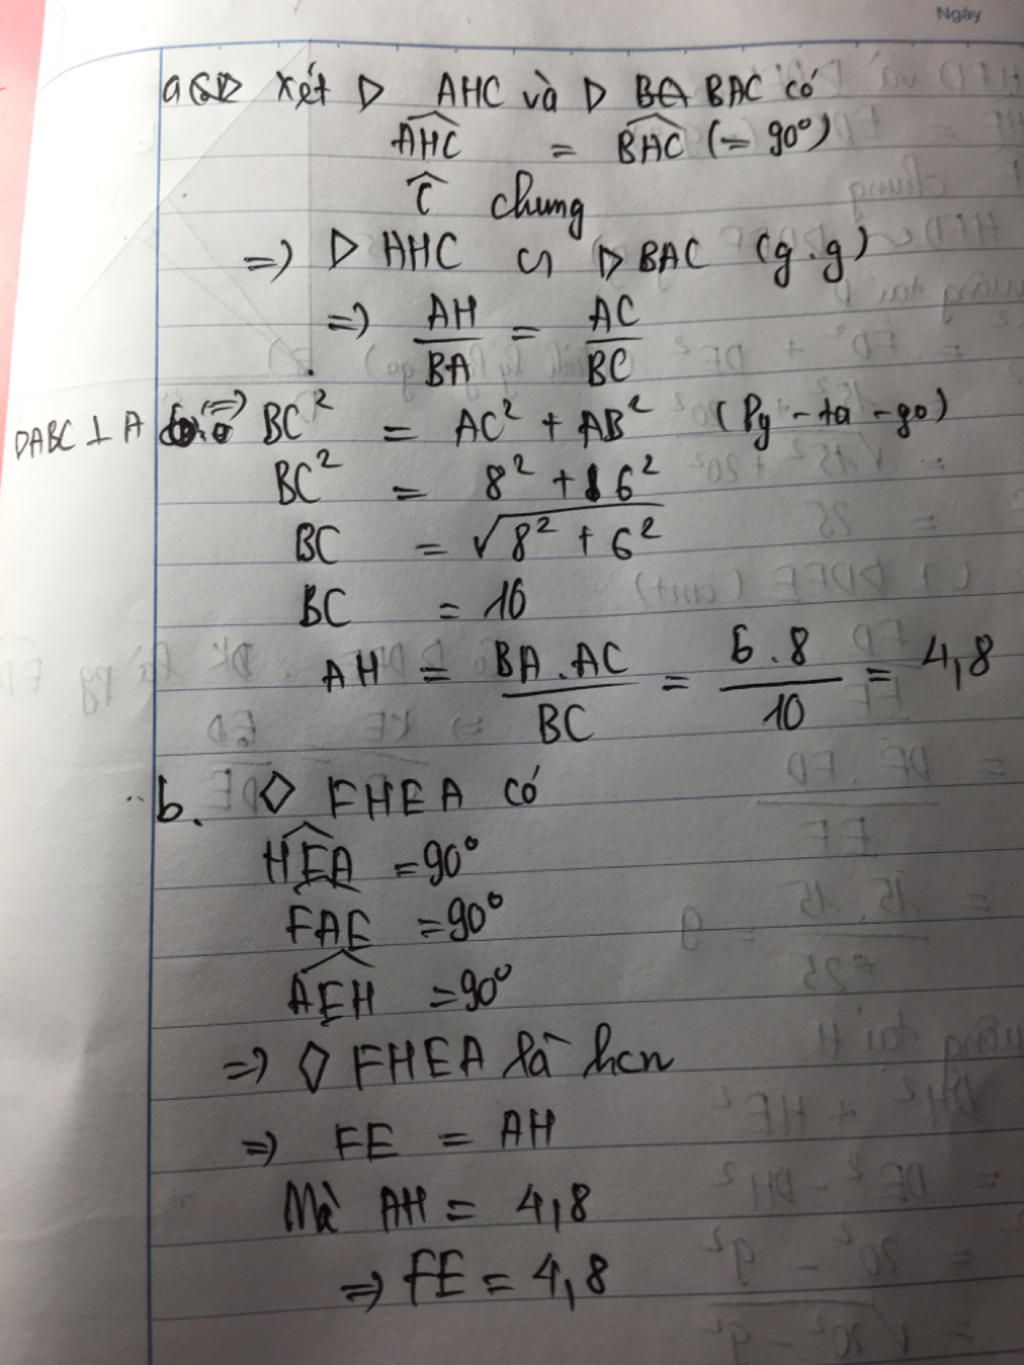 Ngày
a Xét Δ AHC và Δ BAC có
AHC = BAC (= 90°)
C chung
=> Δ AHC ∽ Δ BAC (g.g)
=> AH/BA = AC/BC
ΔABC ⊥ A (=>) BC² = AC² + AB² (Py-ta-go)
BC² = 8² + 6²
BC = √8² + 6²
BC = 10
AH = BA.AC/BC = 6.8/10 = 4,8
b. ◇ FHEA có
HEA = 90°
FAE = 90°
AEH = 90°
=> ◇ FHEA là hcn
=> FE = AH
Mà AH = 4,8
=> FE = 4,8